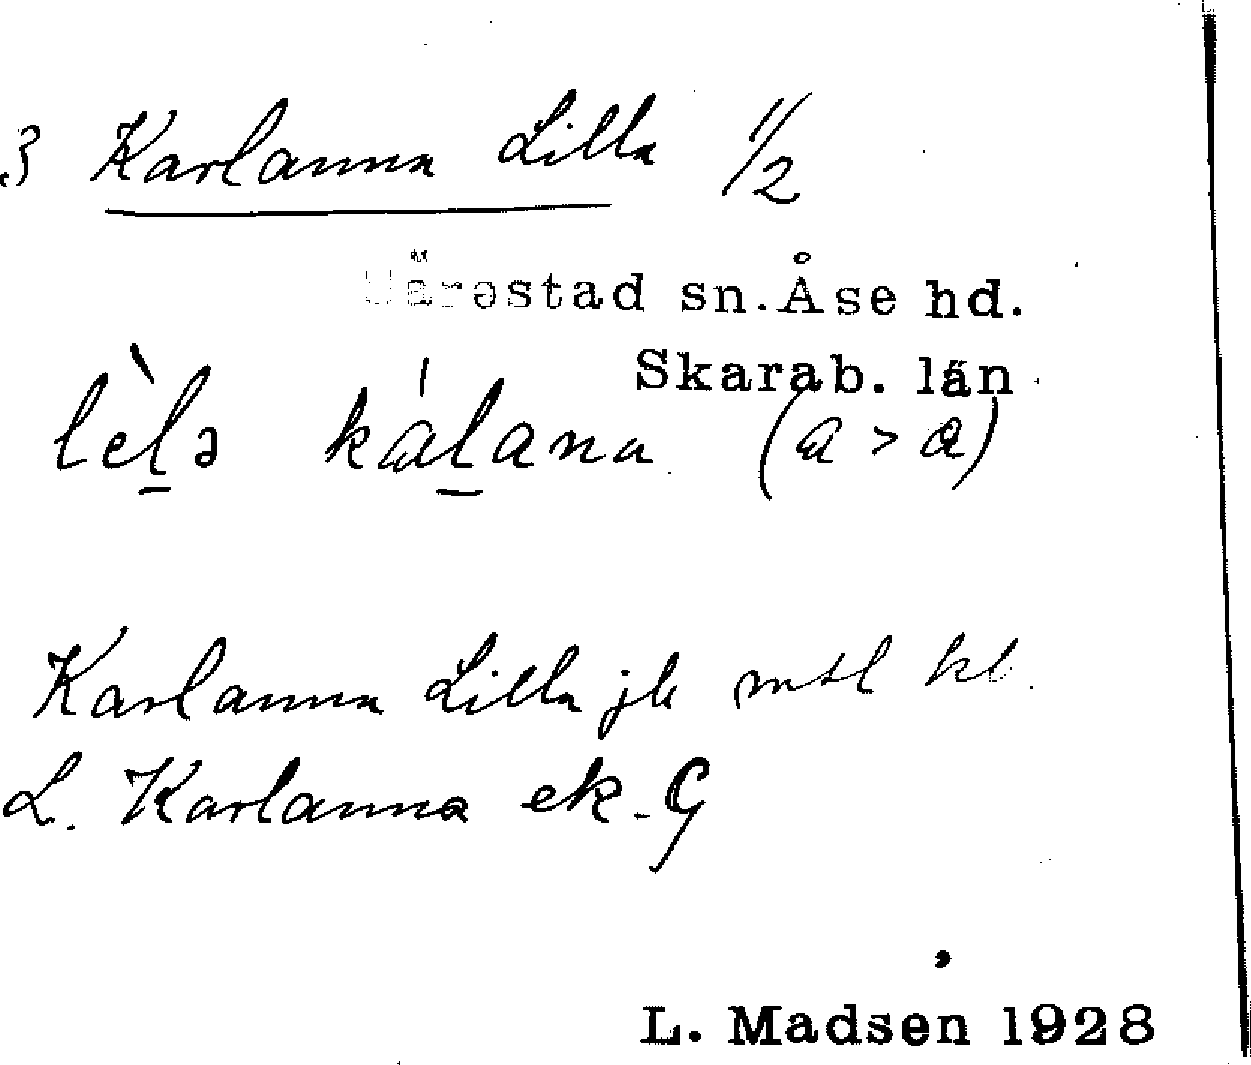 3 Karlanna Lilla 1/2
Särestad sn. Åse hd.
Skarab. län
lèlə kálana (a > a)
Karlanna Lilla jb mtl kb.
L. Karlanna ek. G
L. Madsen 1928